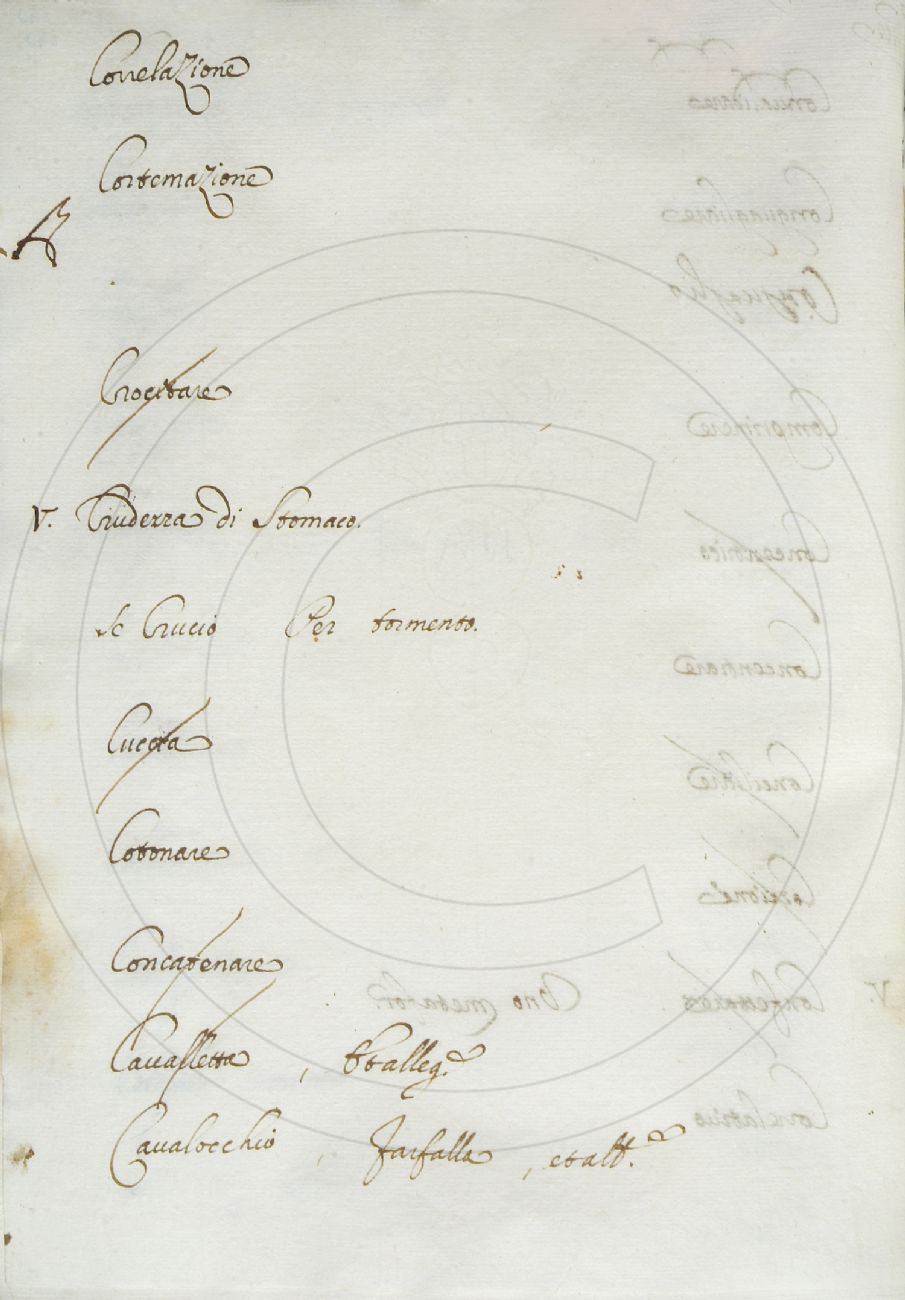 Correlazione
Cortemazione
Crocitare
V. Crudezza di Stomaco.
Se Crucio Per tormento.
Cuccia
Cotonare
Concatenare
Cavalletta,
Cavalocchio, Farfalla, et alt.ᵃ